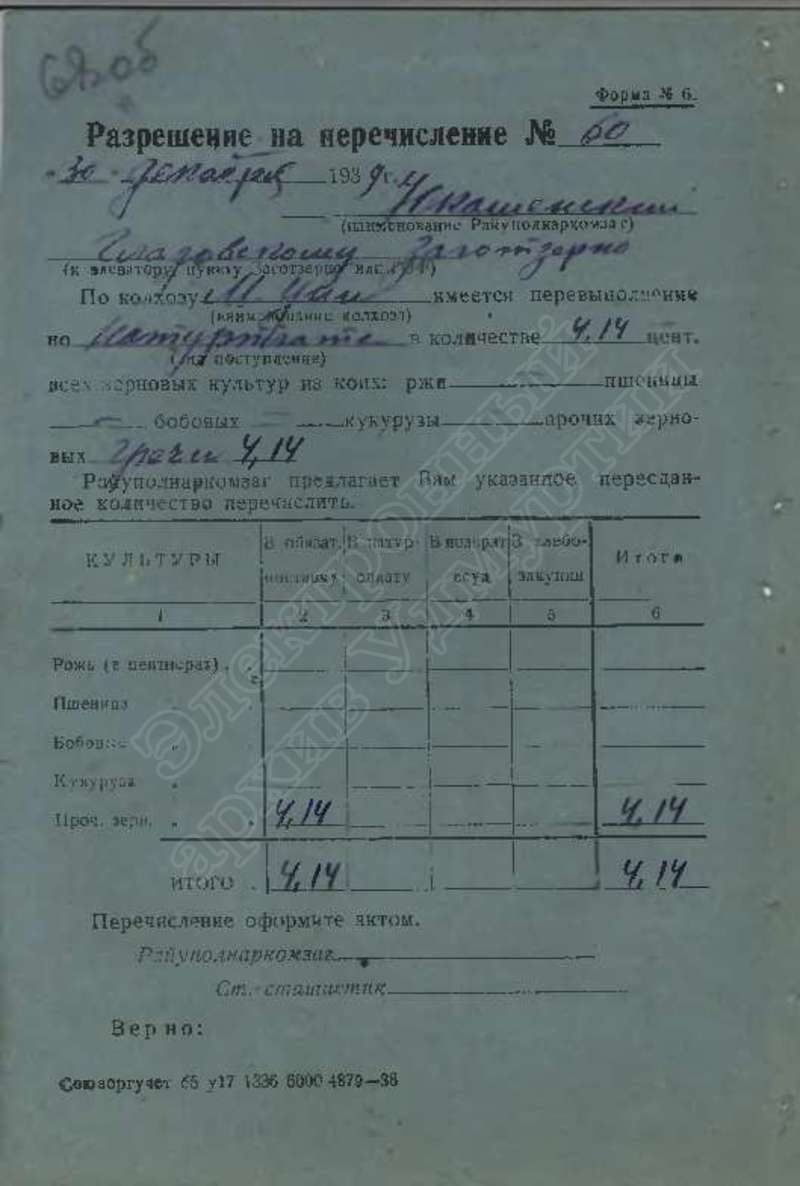 Форма № 6.
Разрешение на перечисление № 60
"30" декабря 1939 г.
(наименование Райуполнаркомзаг)
Глазовскому Заготзерно
(к элеватору, пункту Заготзерно или
По колхозу имеется перевыполнение
(наименование колхоза)
по натуроплате в количестве 4,14 цент.
(вид поступления)
всех зерновых культур из коих: ржи пшеницы
бобовых кукурузы прочих зерно-
вых Гречи 4,14
Райуполнаркомзаг предлагает Вам указанное пересдан-
ное количество перечислить.
КУЛЬТУРЫ В обязат. поставку В натур- оплату В возврат ссуд В хлебо- закупки Итого
1 2 3 4 5 6
Рожь (в центнерах) .
Пшеница "
Бобовые "
Кукуруза "
Проч. зерн. " 4,14 4,14
ИТОГО . 4,14 4,14
Перечисление оформите актом.
Райуполнаркомзаг
Ст. статистик
Верно:
Союзоргучет 65 у17 1336 5000 4879—38
Электронный
архив Удмуртии